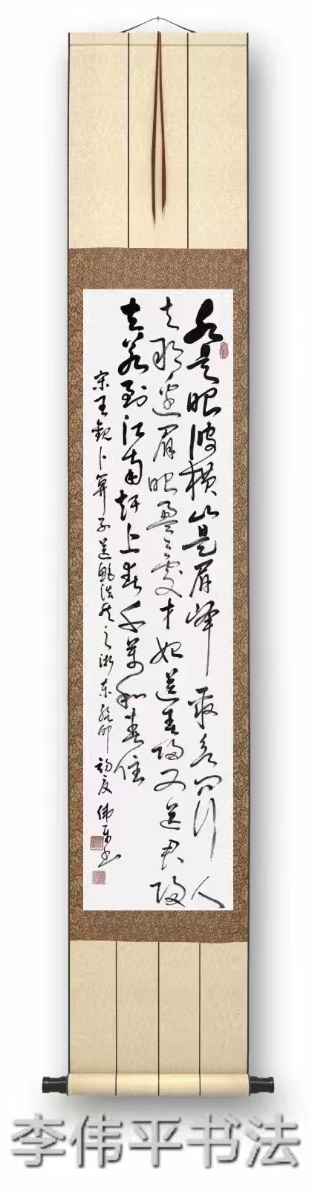 水是眼波横山是眉峰聚欲问行人
去那边眉眼盈盈处才始送春归又送君归
去若到江南赶上春千万和春住
宋王觀卜算子送鲍浩然之浙东癸卯初夏伟平书
李伟平书法